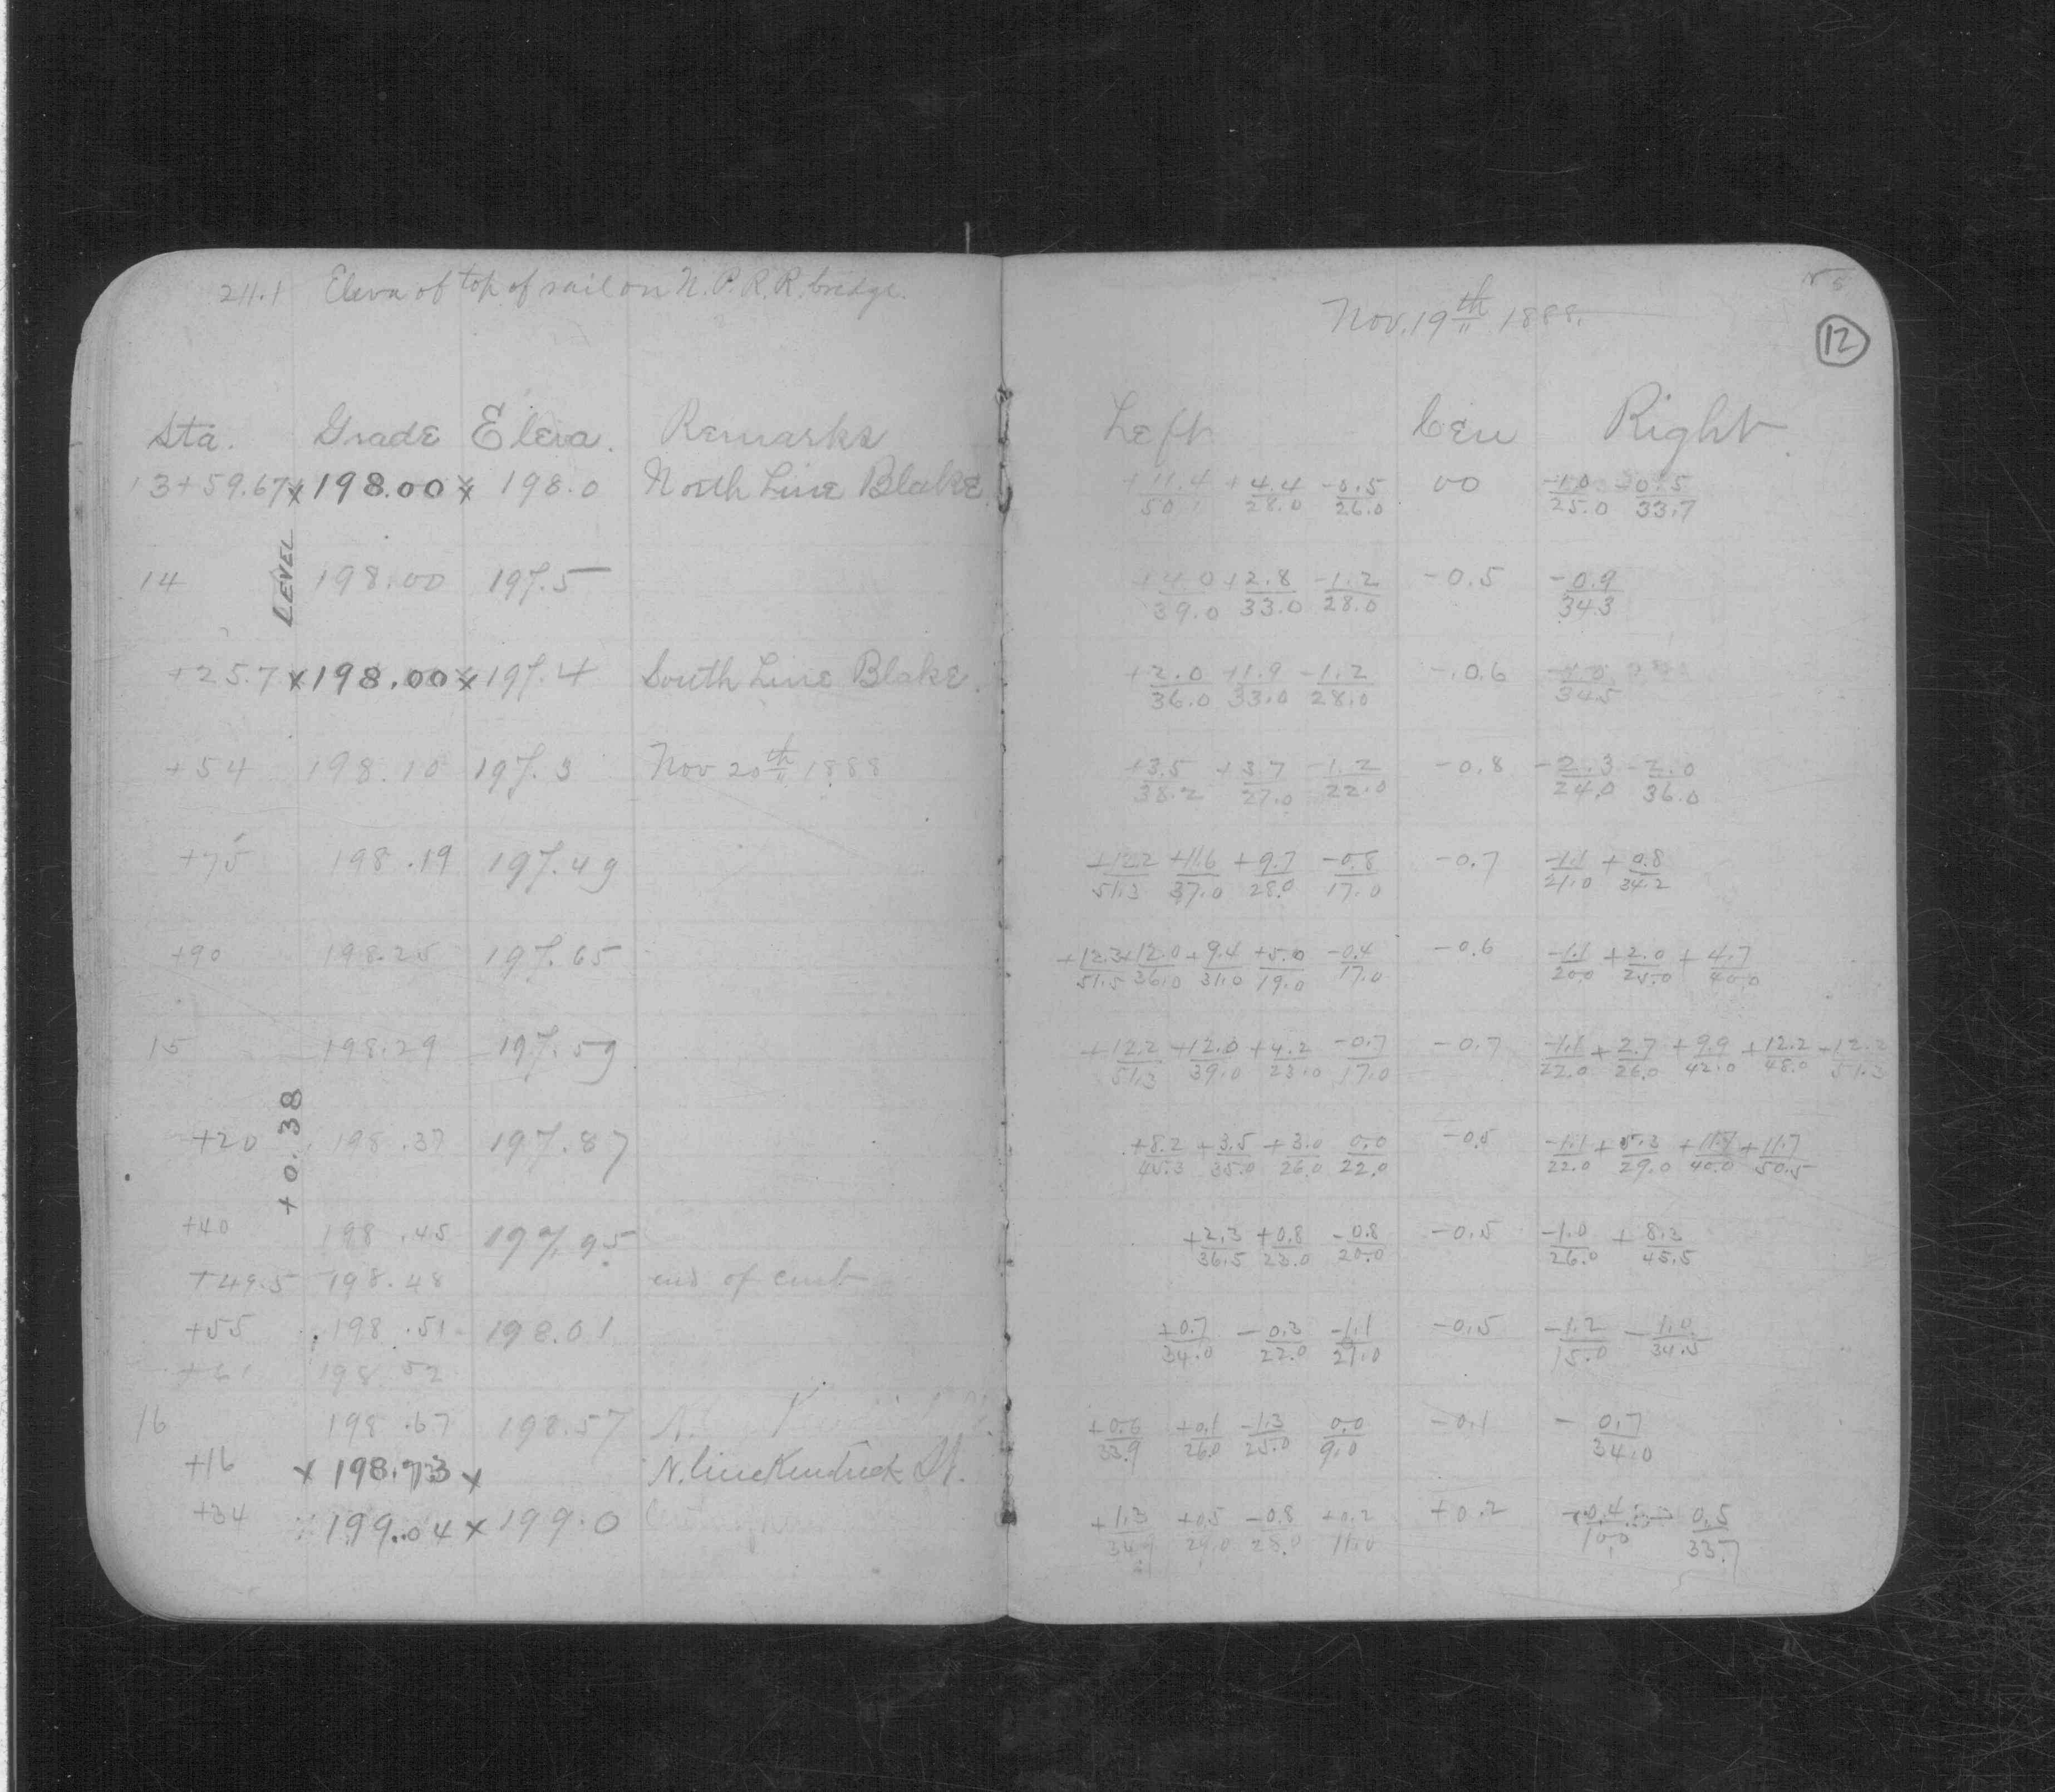 211.1 Eleva of top of rail on N.P.R.R. bridge.
Sta. Grade Eleva. Remarks
13+59.67 x 198.00 x 198.0 North Line Blake
LEVEL
14 198.00 197.5
+25.7 x 198.00 x 197.4 South Line Blake.
+54 198.10 197.3 Nov 20th 1888
+75 198.19 197.49
+90 198.25 197.65
15 198.29 197.59
+0.38
+20 198.37 197.87
+40 198.45 197.95
+49.5 198.48 end of curb
+55 198.51 198.01
+61 198.52
16 198.67 198.57
+16 x 198.73 x N. line Kentuck St.
+34 199.04 x 199.0
Nov. 19th 1888.
12
Left Cen Right
+11.4/50.1 +4.4/28.0 -0.5/26.0 00 -1.0/25.0 -0.5/33.7
+4.0/39.0 +2.8/33.0 -1.2/28.0 -0.5 -0.9/34.3
+2.0/36.0 +1.9/33.0 -1.2/28.0 -0.6 34.5
+3.5/38.2 +3.7/27.0 -1.2/22.0 -0.8 -2.3/24.0 -2.0/36.0
+12.2/51.3 +11.6/37.0 +9.7/28.0 -0.8/17.0 -0.7 -1.1/21.0 +0.8/34.2
+12.3/51.5 +12.0/36.0 +9.4/31.0 +5.0/19.0 -0.4/17.0 -0.6 -1.1/20.0 +2.0/25.0 +4.7/40.0
+12.2/51.3 +12.0/39.0 +4.2/23.0 -0.7/17.0 -0.7 -1.1/22.0 +2.7/26.0 +9.9/42.0 +12.2/48.0 +12.2/51.3
+8.2/45.3 +3.5/35.0 +3.0/26.0 0.0/22.0 -0.5 -1.1/22.0 +5.3/29.0 +11.7/40.0 +11.7/50.5
+2.3/36.5 +0.8/23.0 -0.8/20.0 -0.5 -1.0/26.0 +8.3/45.5
+0.7/34.0 -0.3/22.0 -1.1/21.0 -0.5 -1.2/15.0 -1.0/34.5
+0.6/33.9 +0.1/26.0 -1.3/25.0 0.0/9.0 -0.1 -0.7/34.0
+1.3/34.9 +0.5/29.0 -0.8/28.0 +0.2/11.0 +0.2 +0.4/10.0 -0.5/33.7